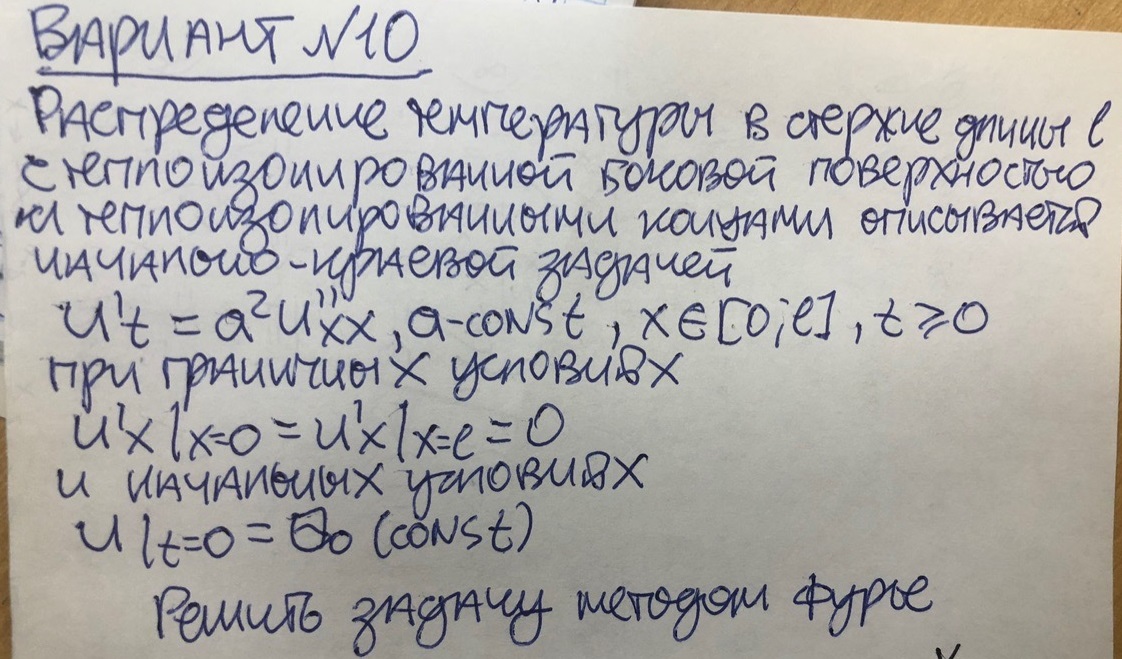 Вариант №10
Распределение температуры в стержне длины l
с теплоизолированной боковой поверхностью
и теплоизолированными концами описывается
начально-краевой задачей
u't = a²u''xx, a-const, x∈[0;l], t≥0
при граничных условиях
u'x|x=0 = u'x|x=l = 0
и начальных условиях
u|t=0 = θ₀ (const)
Решить задачу методом Фурье